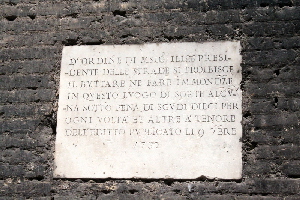 D'ORDINE DI MSIG ILLMO PRESI
DENTE DELLE STRADE SI PROIBISCE
IL BUTTARE NE FARE IMMONDEZ
IN QUESTO LUOGO DI SORTE ALCU
NA SOTTO PENA DI SCUDI DIECI PER
OGNI VOLTA ET ALTRE A TENORE
DELL'EDITTO PUBLICATO LI 9